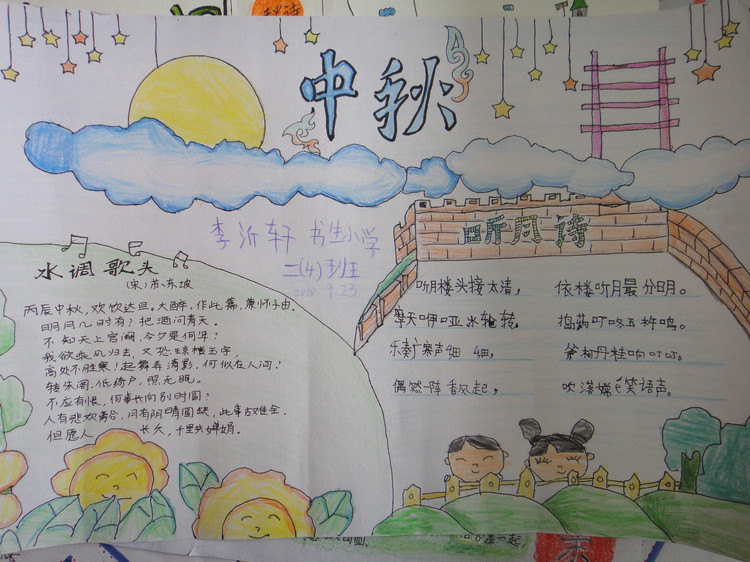 中秋
李沂轩 书生小学
二(4)班
2010.9.23
水调歌头
(宋)苏东坡
丙辰中秋,欢饮达旦。大醉,作此篇,兼怀子由。
明月几时有?把酒问青天。
不知天上宫阙,今夕是何年?
我欲乘风归去,又恐琼楼玉宇,
高处不胜寒!起舞弄清影,何似在人间?
转朱阁,低绮户,照无眠。
不应有恨,何事长向别时圆?
人有悲欢离合,月有阴晴圆缺,此事古难全。
但愿人 长久,千里共婵娟。
听月诗
听月楼头接太清, 依楼听月最分明。
摩天咿哑冰轮转, 捣药叮咚玉杵鸣。
乐奏广寒声细细, 斧柯丹桂响叮叮。
偶然一阵香风起, 吹落嫦笑语声。